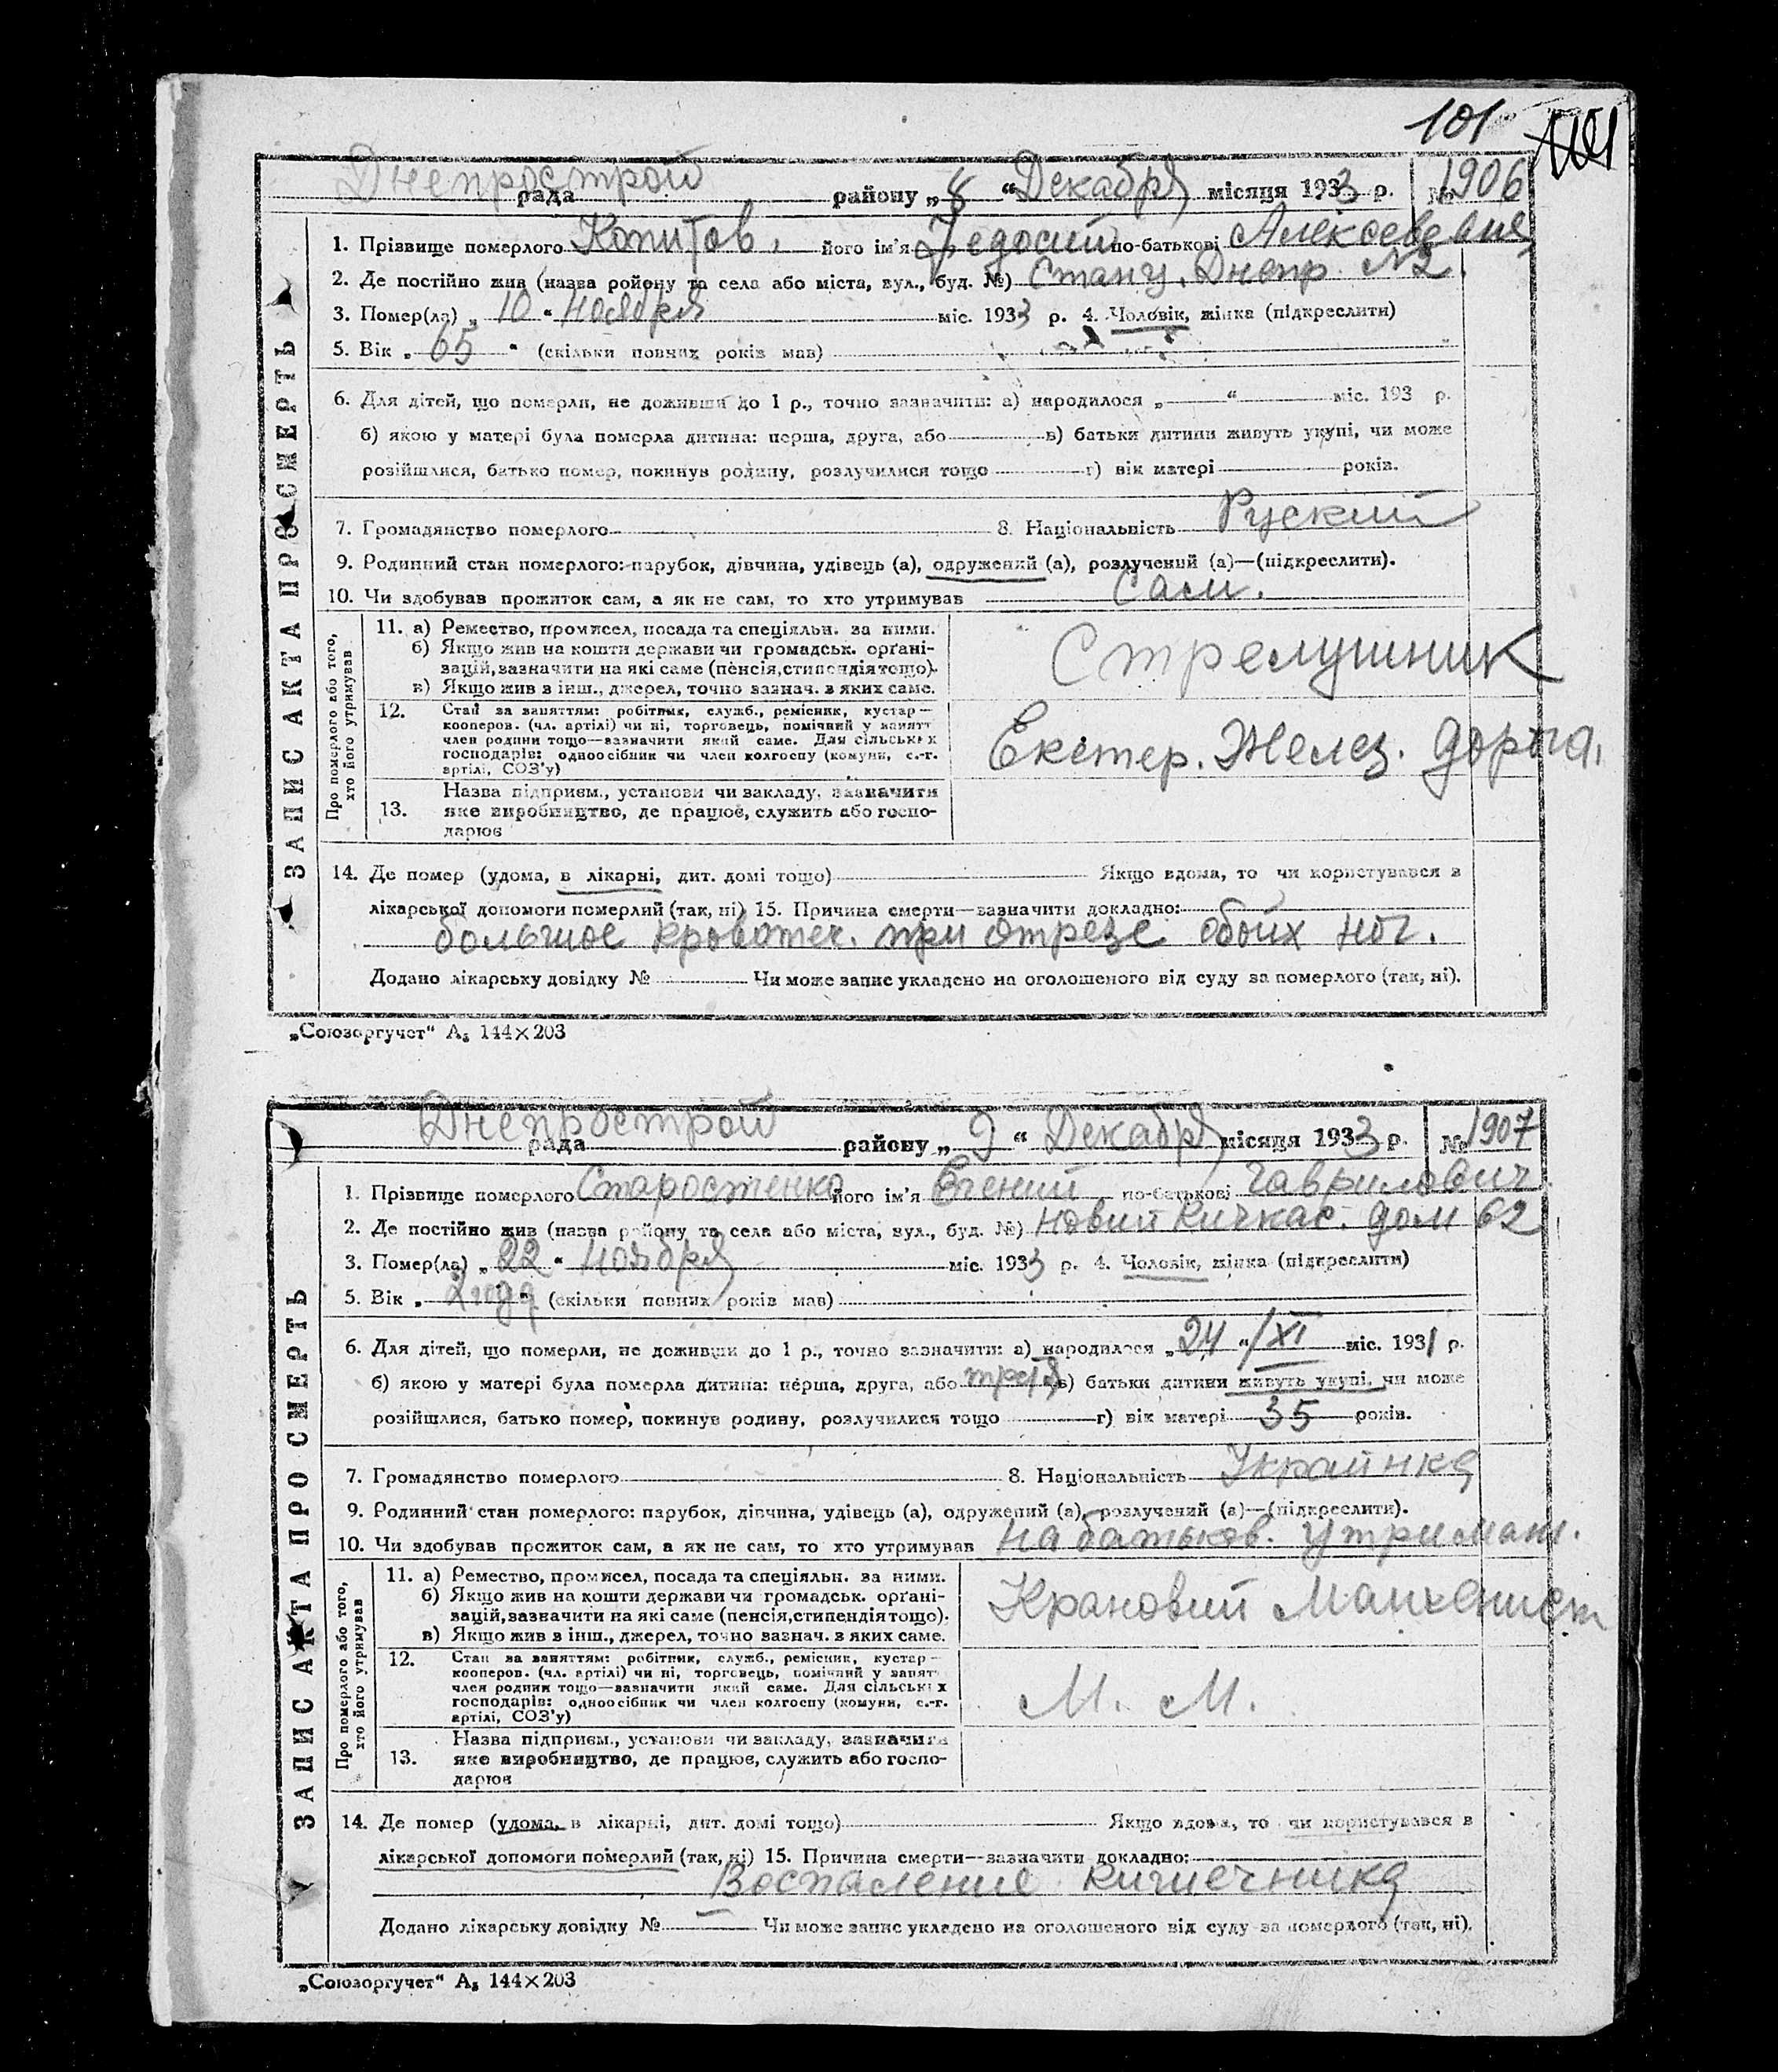 101
Днепрострой рада району „8“ Декабря місяця 1933 р. № 1906
ЗАПИС АКТА ПРО СМЕРТЬ
1. Прізвище померлого Копитов, його ім'я Федосий по-батькові
2. Де постійно жив (назва ройону та села або міста, вул., буд. №) Станц. Днепр. №2.
3. Помер(ла) „10“ ноября міс. 1933 р. 4. Чоловік, жінка (підкреслити)
5. Вік „65“ (скільки повних років мав)
6. Для дітей, що померли, не доживши до 1 р., точно зазначити: а) народилося „ “ міс. 193 р.
б) якою у матері була померла дитина: перша, друга, або в) батьки дитини живуть укупі, чи може
розійшлися, батько помер, покинув родину, розлучилися тощо г) вік матері років.
7. Громадянство померлого 8. Національність Руский
9. Родинний стан померлого: парубок, дівчина, удівець (а), одружений (а), розлучений (а)—(підкреслити).
10. Чи здобував прожиток сам, а як не сам, то хто утримував Сам.
Про померлого або того, хто його утримував
11. а) Ремество, промисел, посада та спеціяльн. за ними.
б) Якщо жив на кошти держави чи громадськ. орґані-
зацій, зазначити на які саме (пенсія, стипендія тощо).
в) Якщо жив з інш., джерел, точно зазнач. з яких саме.
Стрелушник
12. Стан за заняттям: робітник, служб., ремісник, кустар—
кооперов. (чл. артілі) чи ні, торговець, помічний у занятт
член родини тощо—зазначити який саме. Для сільських
господарів: одноосібник чи член колгоспу (комуни, с.-г.
артілі, СОЗ'у)
Екстер. Желез. дорога.
13. Назва підприєм., установи чи закладу, зазначити
яке виробництво, де працює, служить або госпо-
дарює
14. Де помер (удома, в лікарні, дит. домі тощо) Якщо вдома, то чи користувався в
лікарської допомоги померлий (так, ні) 15. Причина смерти—зазначити докладно:
большое кровотеч. при отрезе обоих ног.
Додано лікарську довідку № Чи може запис укладено на оголошеного від суду за померлого (так, ні).
„Союзоргучет“ А5 144×203
Днепрострой рада району „9“ Декабря місяця 1933 р. № 1907
ЗАПИС АКТА ПРО СМЕРТЬ
1. Прізвище померлого Старостенко його ім'я Евгений по-батькові Гаврилович
2. Де постійно жив (назва району та села або міста, вул., буд. №) Новий Кичкас. дом 62
3. Помер(ла) „22“ ноября міс. 1933 р. 4. Чоловік, жінка (підкреслити)
5. Вік „2 года“ (скільки повних років мав)
6. Для дітей, що померли, не доживши до 1 р., точно зазначити: а) народилося „24“/XI міс. 1931 р.
б) якою у матері була померла дитина: перша, друга, або третя в) батьки дитини живуть укупі, чи може
розійшлися, батько помер, покинув родину, розлучилися тощо г) вік матері 35 років.
7. Громадянство померлого 8. Національність Украинка
9. Родинний стан померлого: парубок, дівчина, удівець (а), одружений (а), розлучений (а)—(підкреслити).
10. Чи здобував прожиток сам, а як не сам, то хто утримував на батьков. утриман.
Про померлого або того, хто його утримував
11. а) Ремество, промисел, посада та спеціяльн. за ними.
б) Якщо жив на кошти держави чи громадськ. орґані-
зацій, зазначити на які саме (пенсія, стипендія тощо).
в) Якщо жив з інш., джерел, точно зазнач. з яких саме.
Крановий
12. Стан за заняттям: робітник, служб., ремісник, кустар—
кооперов. (чл. артілі) чи ні, торговець, помічний у занят
член родини тощо—зазначити який саме. Для сільських
господарів: одноосібник чи член колгоспу (комуни, с.-г.
артілі, СОЗ'у)
М. М.
13. Назва підприєм., установи чи закладу, зазначити
яке виробництво, де працює, служить або госпо-
дарює
14. Де помер (удома, в лікарні, дит. домі тощо) Якщо вдома, то чи користувався в
лікарської допомоги померлий (так, ні) 15. Причина смерти—зазначити докладно:
Воспаление кишечника
Додано лікарську довідку № Чи може запис укладено на оголошеного від суду за померлого (так, ні).
„Союзоргучет“ А5 144×203